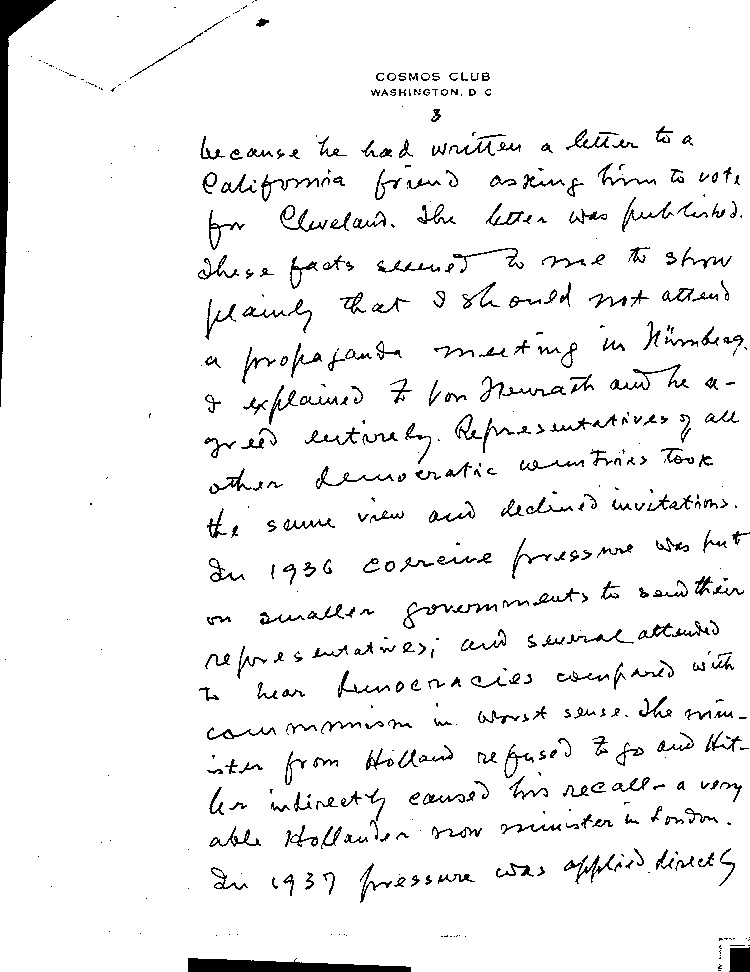 COSMOS CLUB
WASHINGTON, D C
3
because he had written a letter to a
California friend asking him to vote
for Cleveland. The letter was published.
These facts seemed to me to show
plainly that I should not attend
a propaganda meeting in Nürnberg.
I explained to Von Neurath and he a-
greed entirely. Representatives of all
other democratic countries took
the same view and declined invitations.
In 1936 coercive pressure was put
on smaller governments to send their
representatives; and several attended
to hear democracies compared with
communism in worst sense. The min-
ister from Holland refused to go and Hit-
ler indirectly caused his recall - a very
able Hollander now minister in London.
In 1937 pressure was applied directly